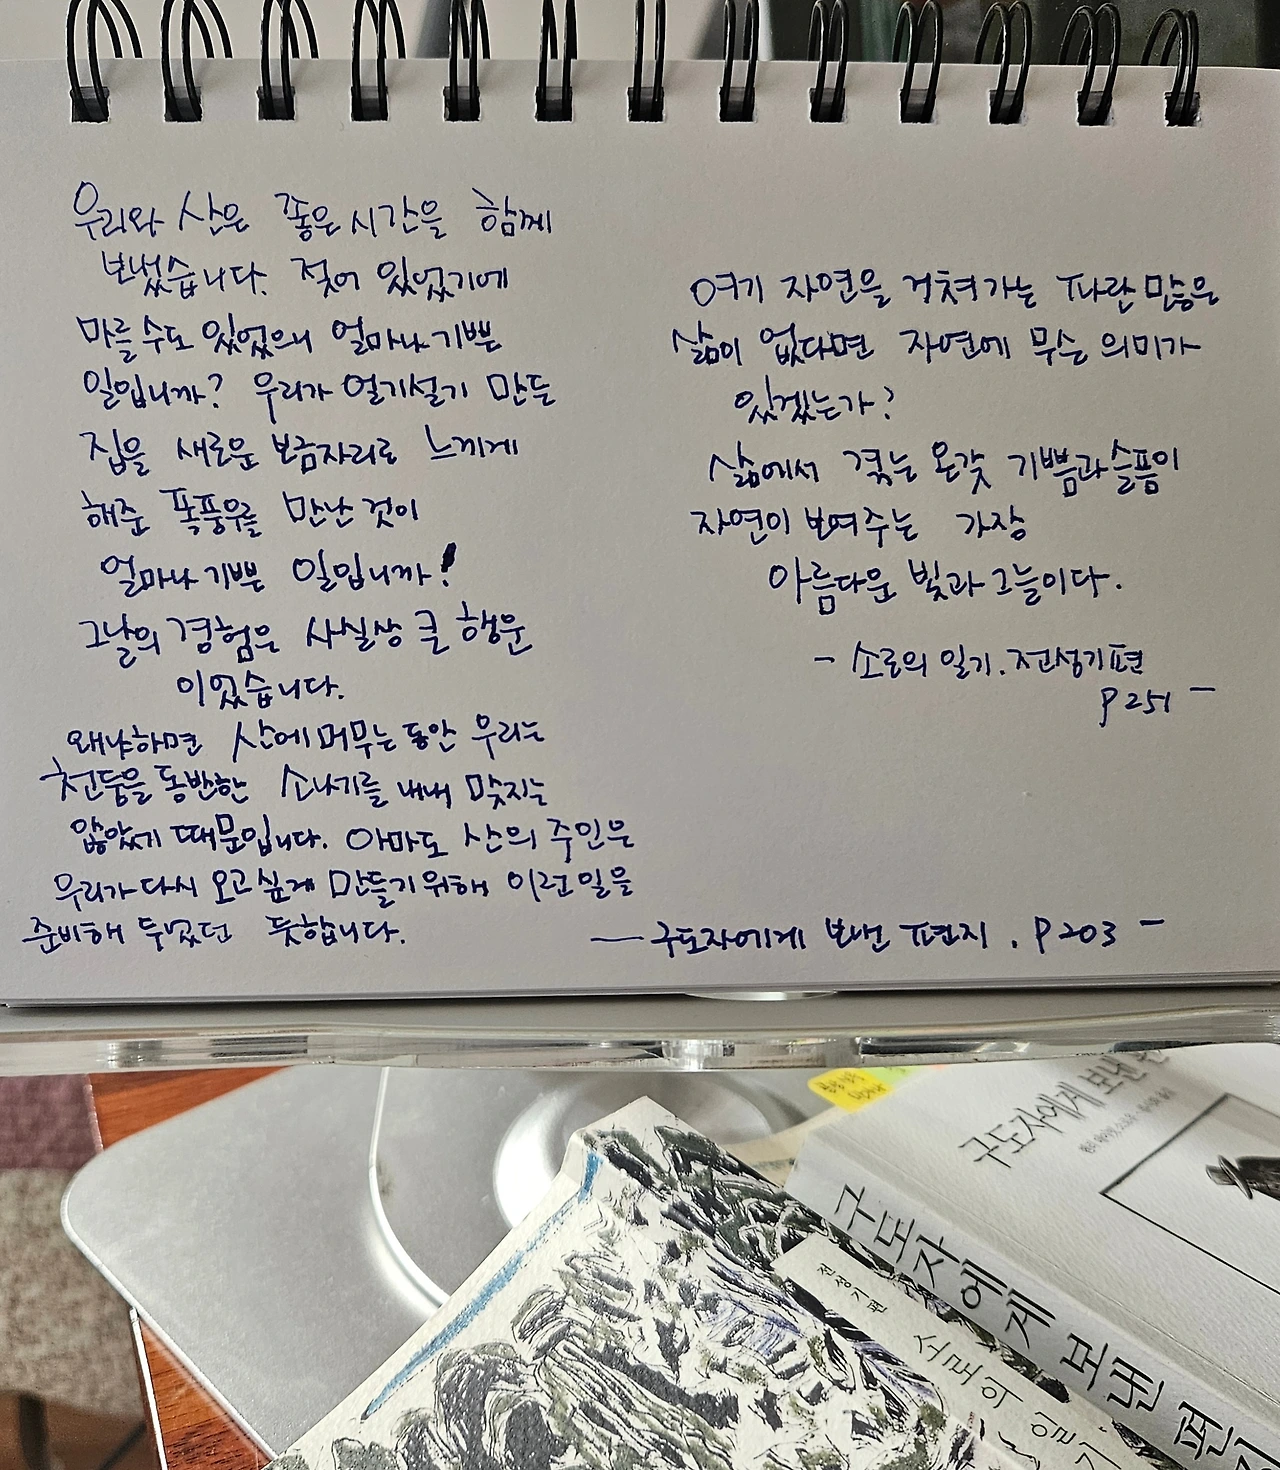 우리와 산은 좋은 시간을 함께
보냈습니다. 젖어 있었기에
마를 수도 있었으니 얼마나 기쁜
일입니까? 우리가 얼기설기 만든
집을 새로운 보금자리로 느끼게
해준 폭풍우를 만난 것이
얼마나 기쁜 일입니까!
그날의 경험은 사실상 큰 행운
이었습니다.
왜냐하면 산에 머무는 동안 우리는
천둥을 동반한 소나기를 내내 맞지는
않았기 때문입니다. 아마도 산의 주인은
우리가 다시 오고 싶게 만들기 위해 이런 일을
준비해 두었던 듯합니다.
— 구도자에게 보낸 편지. P 203 -
여기 자연을 거쳐가는 파란 많은
삶이 없다면 자연에 무슨 의미가
있겠는가?
삶에서 겪는 온갖 기쁨과 슬픔이
자연이 보여주는 가장
아름다운 빛과 그늘이다.
- 소로의 일기. 전성기편
P 251 -
구도자에게 보낸
구도자에게 보낸 편지
전성기편
소로의 일기